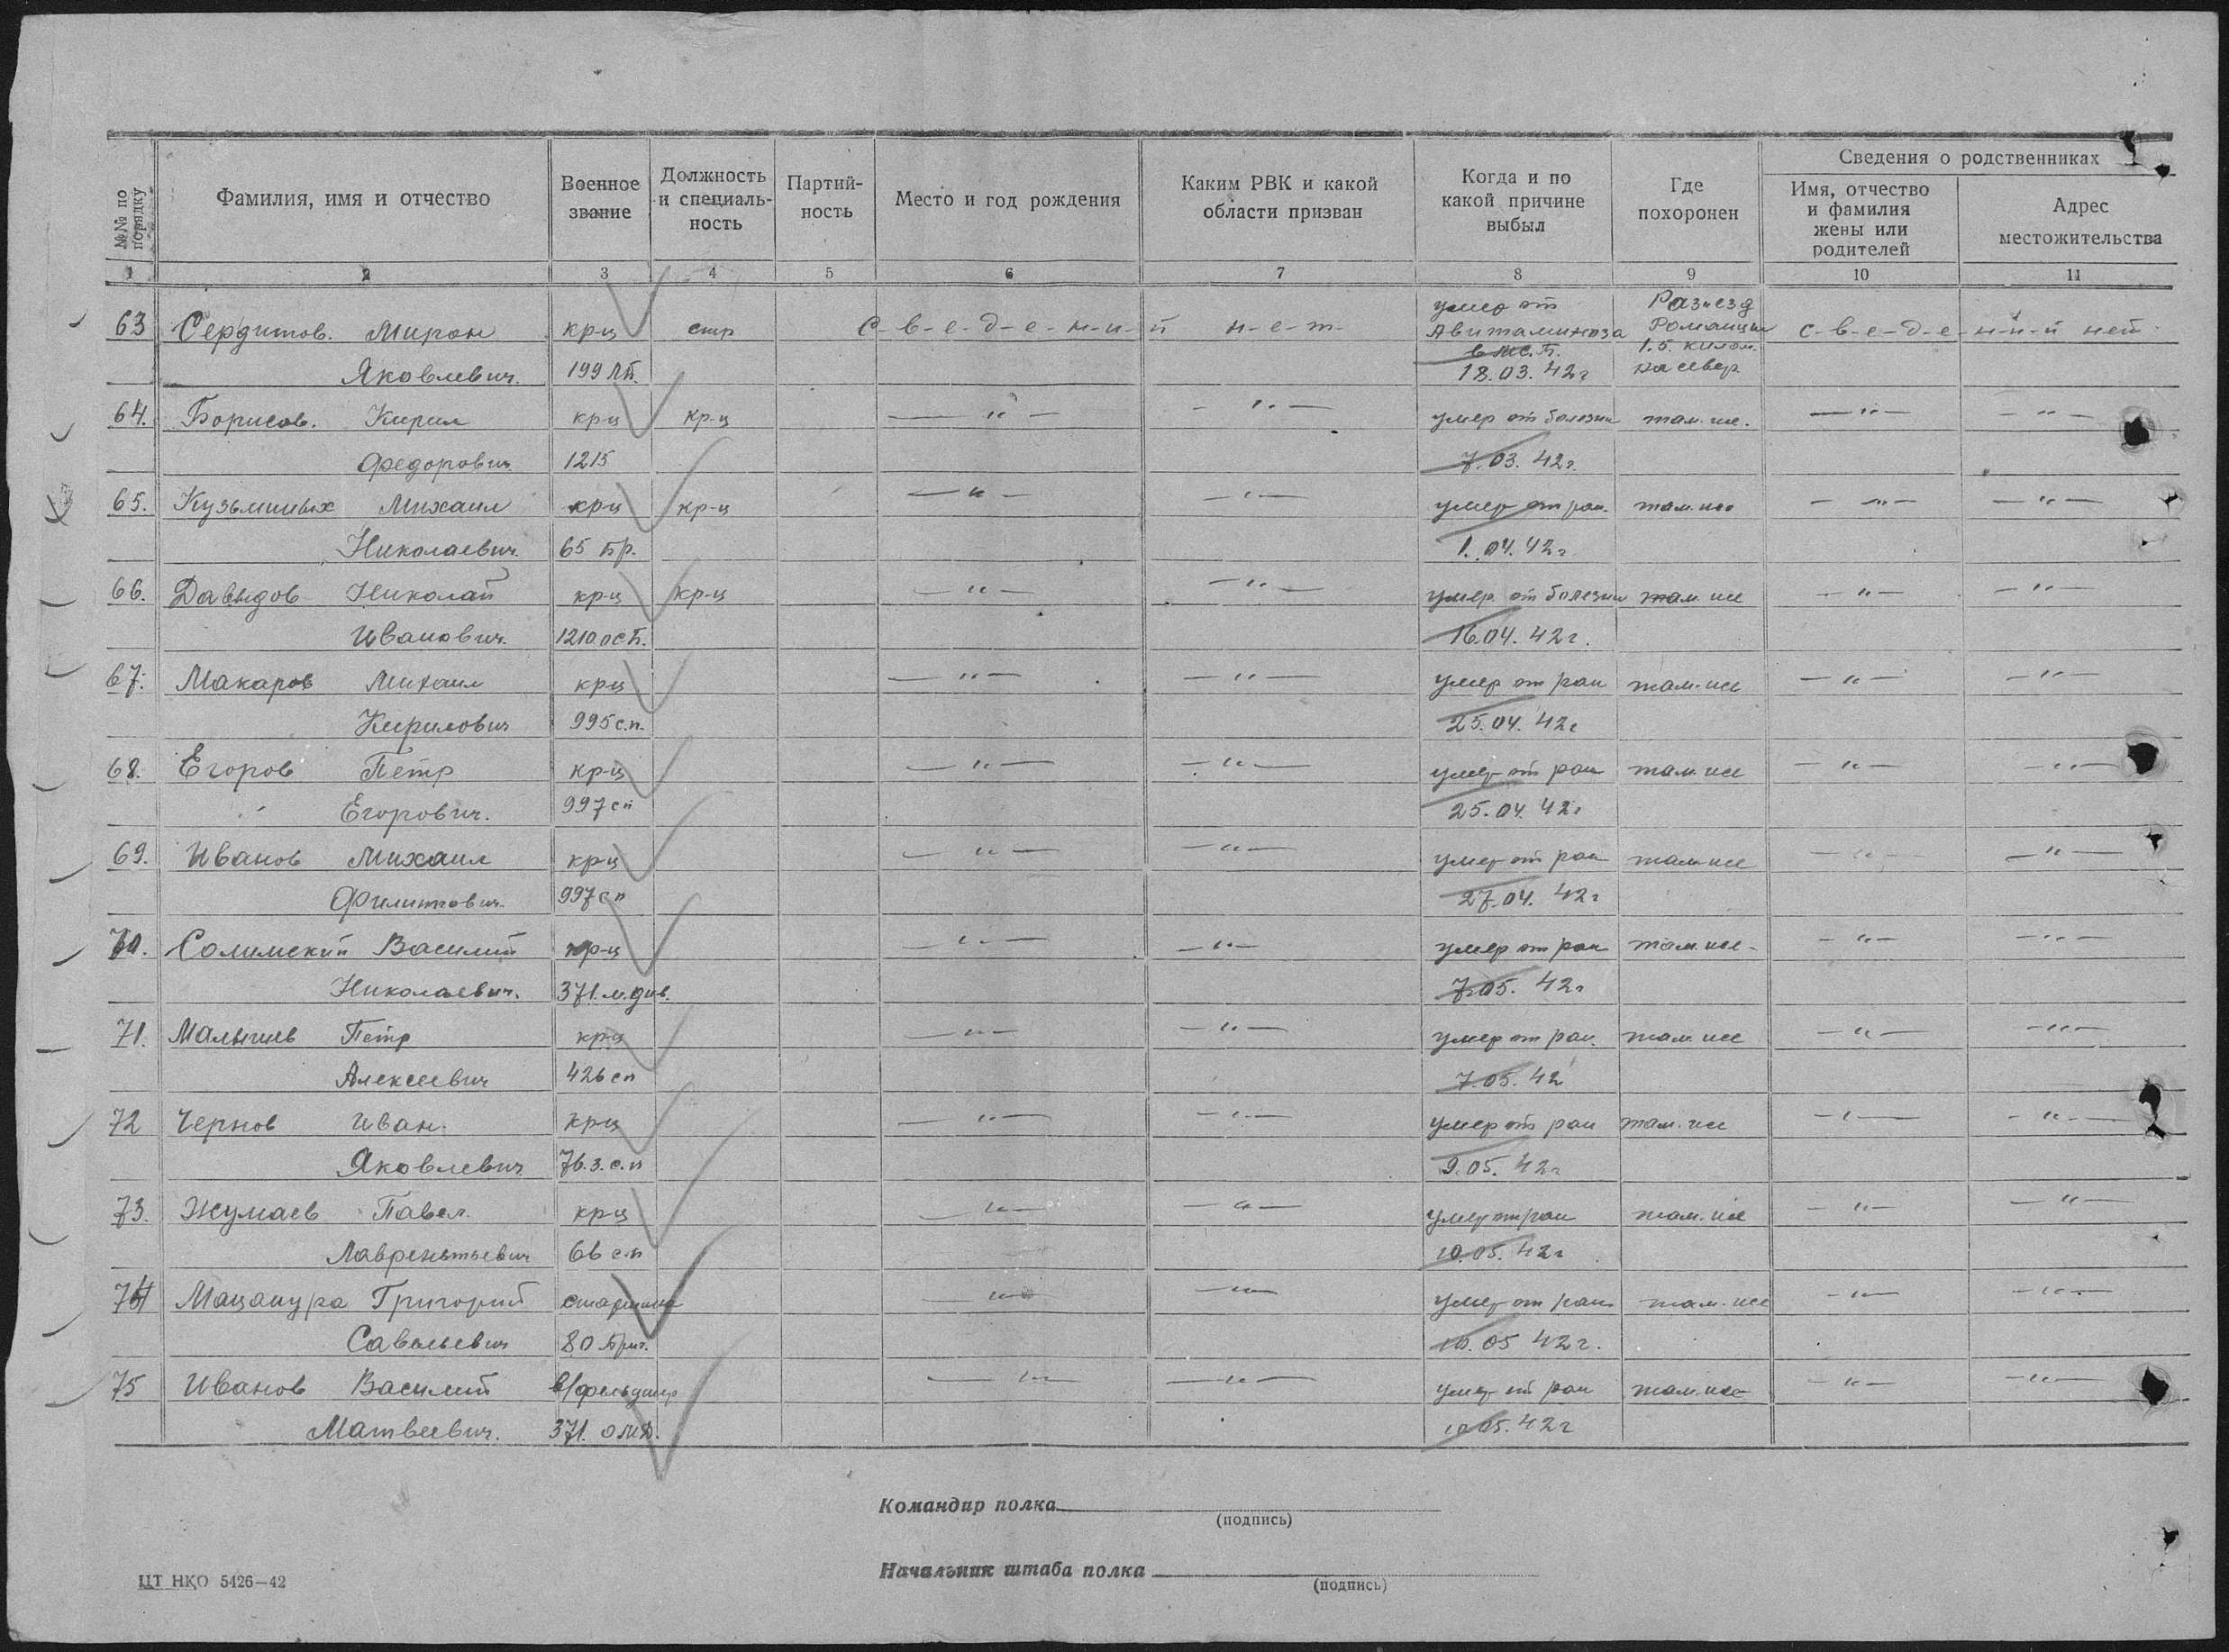 №№ по порядку
Фамилия, имя и отчество
Военное звание
Должность и специаль-ность
Партий-ность
Место и год рождения
Каким РВК и какой области призван
Когда и по какой причине выбыл
Где похоронен
Сведения о родственниках
Имя, отчество и фамилия жены или родителей
Адрес местожительства
1 2 3 4 5 6 7 8 9 10 11
63 Сердитов. Мирон кр-ц стр с-в-е-д-е-н-и-й н-е-т умер от Авитаминоза Разъезд с-в-е-д-е-н-и-й нет
Яковлевич. 199 в мс.б. 18.03.42г 1.5. килом. на север
64. Борисов. Кирил кр-ц кр-ц —"— —"— умер от болезни там-же. —"— —"—
Федорович 1215 7.03.42г.
65. Кузьминых Михаил кр-ц кр-ц —"— —"— умер от ран. там-же —"— —"—
Николаевич. 65 бр. 1.04.42г
66. Давыдов Николай кр-ц кр-ц —"— —"— умер от болезни там-же —"— —"—
Иванович. 1210 16.04.42г.
67. Макаров Михаил кр-ц —"— —"— умер от ран там-же —"— —"—
Кирилович 995 с.п. 25.04.42г
68. Егоров Петр кр-ц —"— —"— умер от ран там-же —"— —"—
Егорович. 997 сп 25.04.42г
69. Иванов Михаил кр-ц —"— —"— умер от ран там-же —"— —"—
Филиппович. 997 сп 27.04.42г
70. Солимский Василий кр-ц —"— —"— умер от ран там-же —"— —"—
Николаевич. 371. 7.05.42г
71. Малышев Петр кр-ц —"— —"— умер от ран. там-же —"— —"—
Алексеевич 426 сп 7.05.42
72 Чернов Иван. кр-ц —"— —"— умер от ран там-же —"— —"—
Яковлевич 76.з.с.п 9.05.42г
73. Жумаев Павел. кр-ц —"— —"— умер от ран там-же —"— —"—
Лаврентьевич 66 сп 10.05.42г
74 Мацапура Григорий старшина —"— —"— умер от ран там-же —"— —"—
Савельевич 80 бриг. 10.05 42г.
75 Иванов Василий в/фельдшер —"— —"— умер от ран там-же —"— —"—
Матвеевич. 371. 10.05.42г
Командир полка
(подпись)
Начальник штаба полка
(подпись)
ЦТ НКО 5426—42